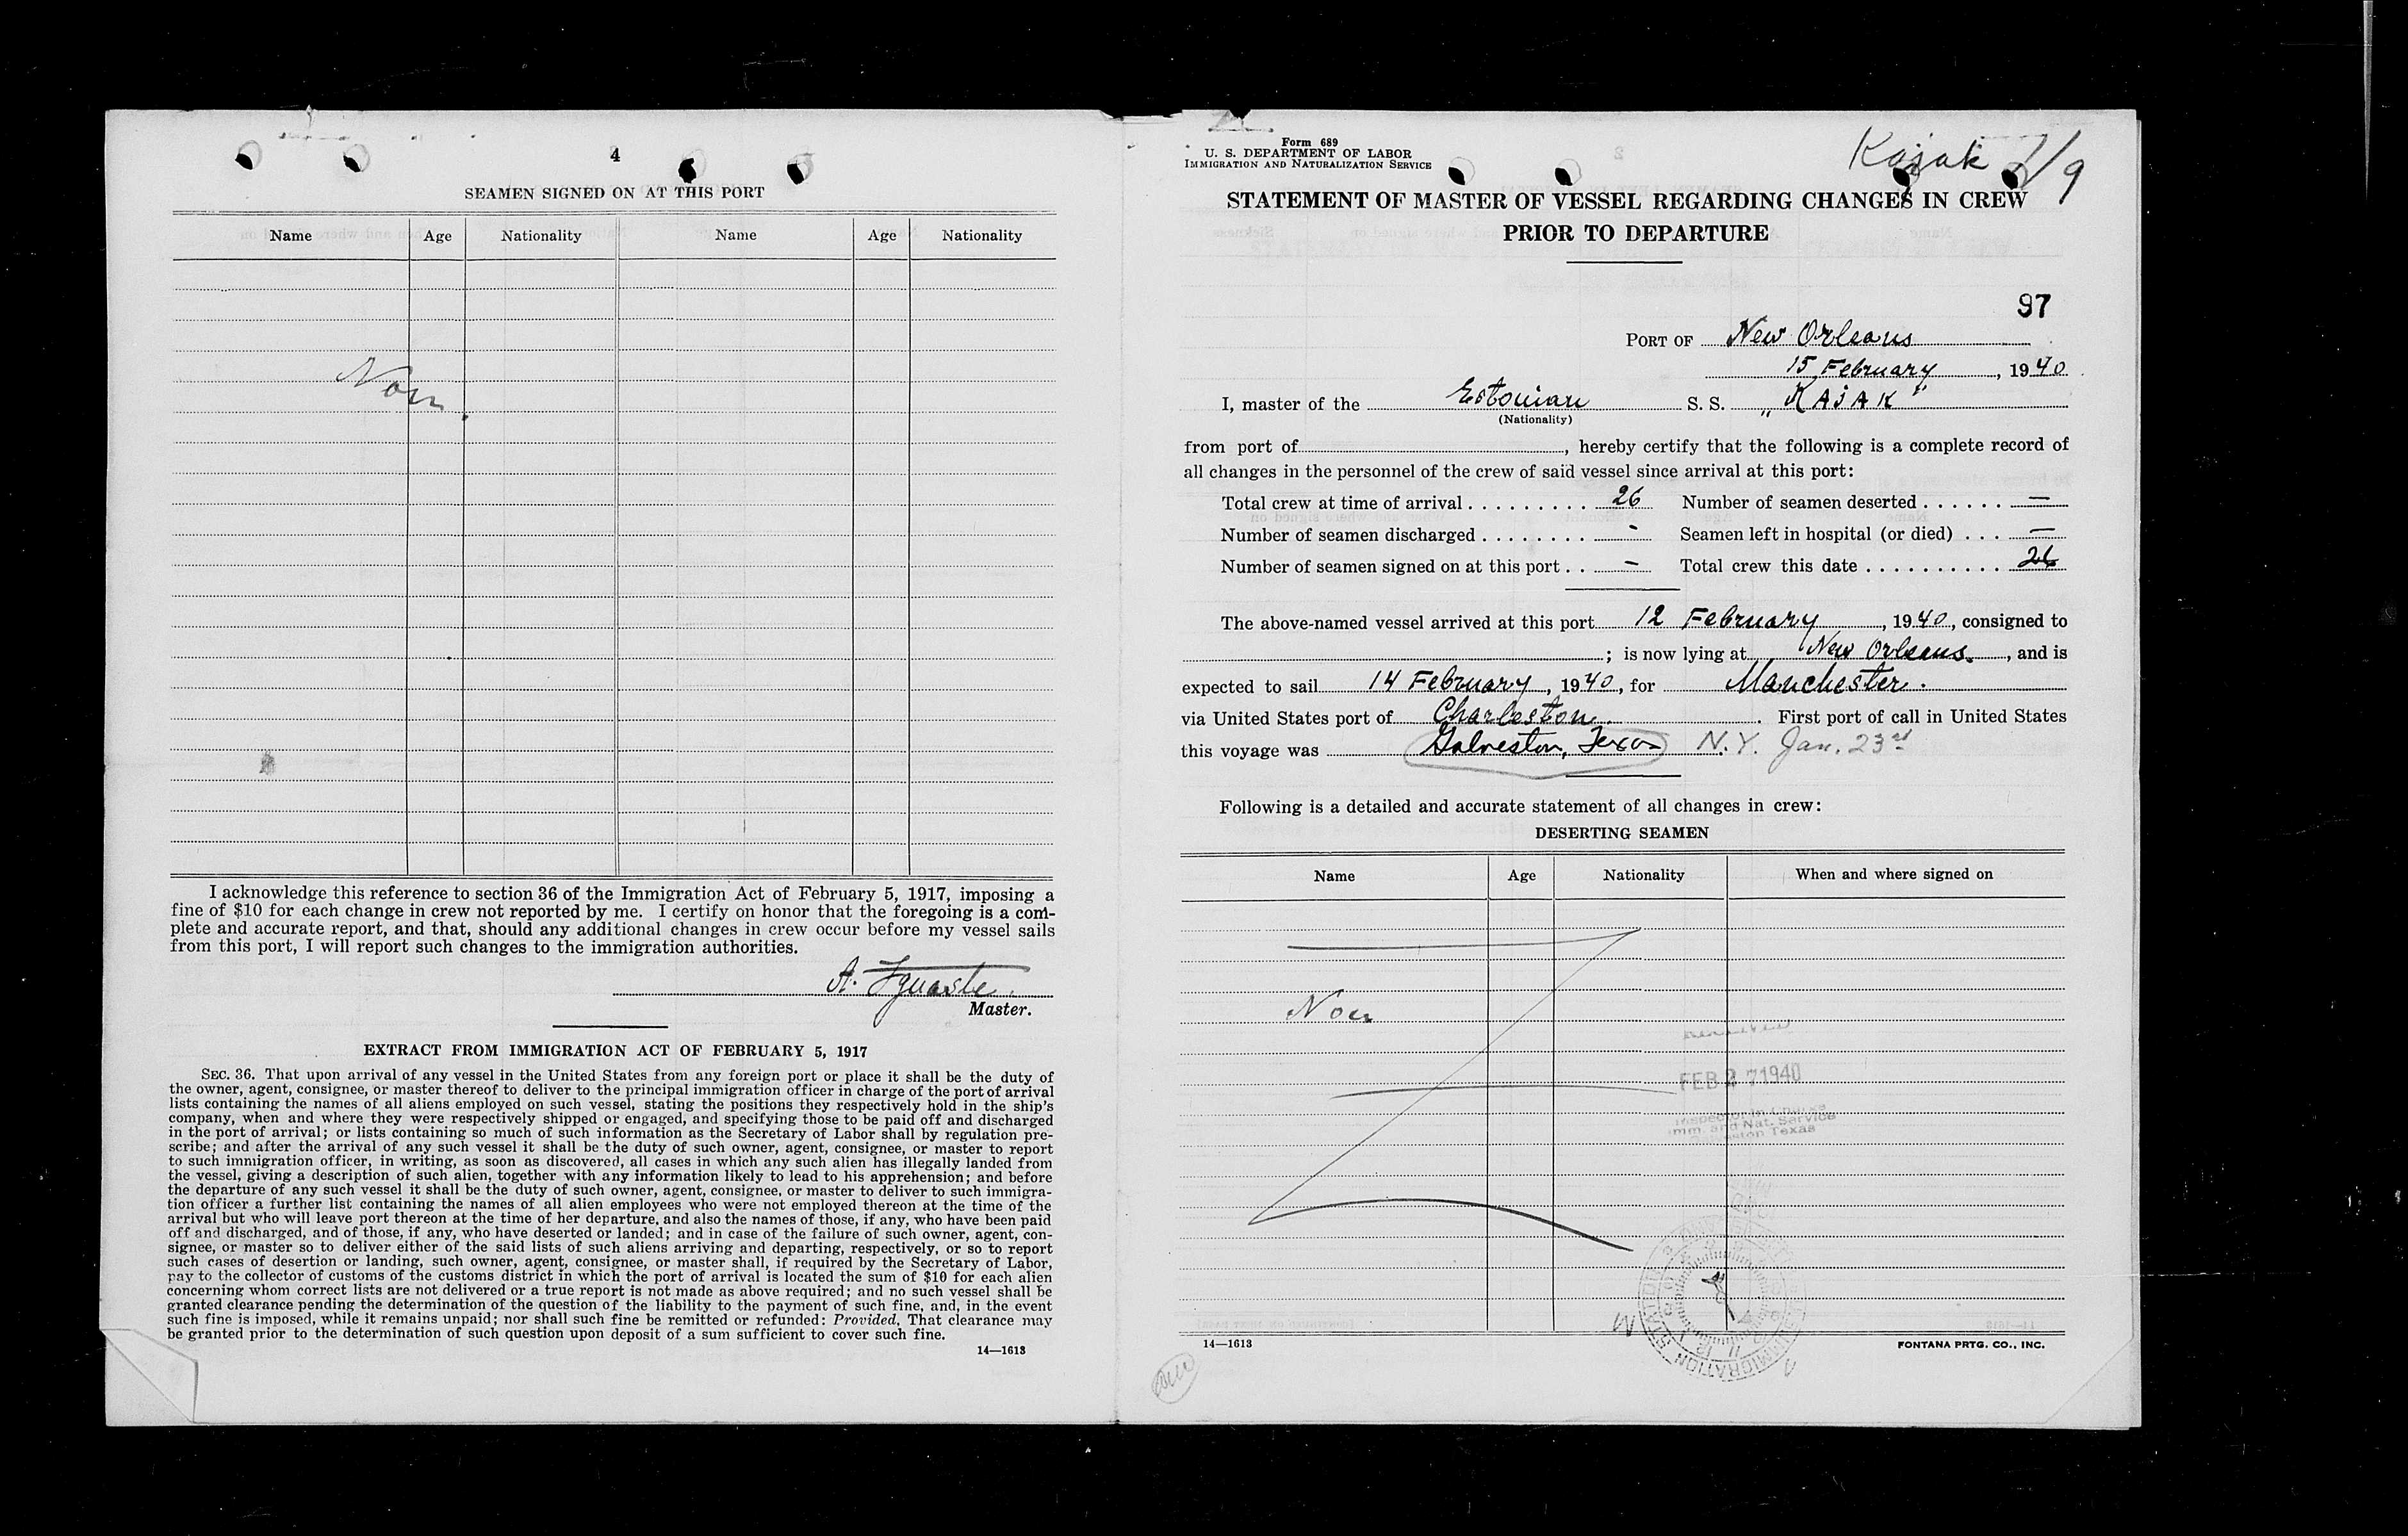 4
SEAMEN SIGNED ON AT THIS PORT
Name Age Nationality Name Age Nationality
I acknowledge this reference to section 36 of the Immigration Act of February 5, 1917, imposing a
fine of $10 for each change in crew not reported by me. I certify on honor that the foregoing is a com-
plete and accurate report, and that, should any additional changes in crew occur before my vessel sails
from this port, I will report such changes to the immigration authorities.
A.
Master.
EXTRACT FROM IMMIGRATION ACT OF FEBRUARY 5, 1917
SEC. 36. That upon arrival of any vessel in the United States from any foreign port or place it shall be the duty of
the owner, agent, consignee, or master thereof to deliver to the principal immigration officer in charge of the port of arrival
lists containing the names of all aliens employed on such vessel, stating the positions they respectively hold in the ship's
company, when and where they were respectively shipped or engaged, and specifying those to be paid off and discharged
in the port of arrival; or lists containing so much of such information as the Secretary of Labor shall by regulation pre-
scribe; and after the arrival of any such vessel it shall be the duty of such owner, agent, consignee, or master to report
to such immigration officer, in writing, as soon as discovered, all cases in which any such alien has illegally landed from
the vessel, giving a description of such alien, together with any information likely to lead to his apprehension; and before
the departure of any such vessel it shall be the duty of such owner, agent, consignee, or master to deliver to such immigra-
tion officer a further list containing the names of all alien employees who were not employed thereon at the time of the
arrival but who will leave port thereon at the time of her departure, and also the names of those, if any, who have been paid
off and discharged, and of those, if any, who have deserted or landed; and in case of the failure of such owner, agent, con-
signee, or master so to deliver either of the said lists of such aliens arriving and departing, respectively, or so to report
such cases of desertion or landing, such owner, agent, consignee, or master shall, if required by the Secretary of Labor,
pay to the collector of customs of the customs district in which the port of arrival is located the sum of $10 for each alien
concerning whom correct lists are not delivered or a true report is not made as above required; and no such vessel shall be
granted clearance pending the determination of the question of the liability to the payment of such fine, and, in the event
such fine is imposed, while it remains unpaid; nor shall such fine be remitted or refunded: Provided, That clearance may
be granted prior to the determination of such question upon deposit of a sum sufficient to cover such fine.
14—1613
Form 689
U. S. DEPARTMENT OF LABOR
IMMIGRATION AND NATURALIZATION SERVICE
Kajak
STATEMENT OF MASTER OF VESSEL REGARDING CHANGES IN CREW
PRIOR TO DEPARTURE
97
PORT OF New Orleans
15 February, 1940
I, master of the Estonian S. S. „KAJAK"
(Nationality)
from port of , hereby certify that the following is a complete record of
all changes in the personnel of the crew of said vessel since arrival at this port:
Total crew at time of arrival 26 Number of seamen deserted —
Number of seamen discharged - Seamen left in hospital (or died) —
Number of seamen signed on at this port — Total crew this date 26
The above-named vessel arrived at this port 12 February, 1940, consigned to
; is now lying at New Orleans., and is
expected to sail 14 February, 1940, for Manchester.
via United States port of Charleston. First port of call in United States
this voyage was Galveston, Texas N.Y. Jan. 23rd
Following is a detailed and accurate statement of all changes in crew:
DESERTING SEAMEN
Name Age Nationality When and where signed on
RECEIVED
FEB 27 1940
Inspector in Charge
Imm. and Nat. Service
Galveston Texas
14—1613
FONTANA PRTG. CO., INC.